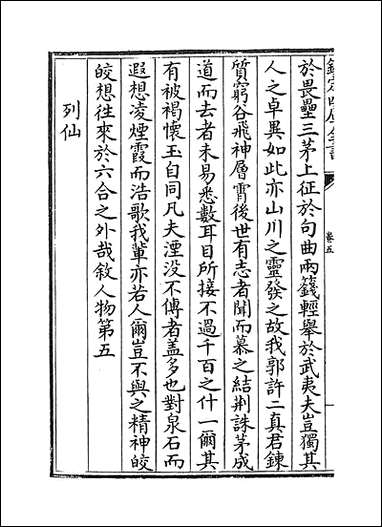 欽定四庫全書
卷五
於畏壘三茅上征於句曲兩籛輕舉於武夷夫豈獨其
人之卓異如此亦山川之靈發之故我郭許二真君鍊
質窮谷飛神層霄後世有志者聞而慕之結荆誅茅成
道而去者未易悉數耳目所接不過千百之什一爾其
有被褐懷玉自同凡夫湮没不傳者盖多也對泉石而
遐想凌煙霞而浩歌我輩亦若人爾豈不與之精神皎
皎想徃來於六合之外哉敘人物第五
列仙